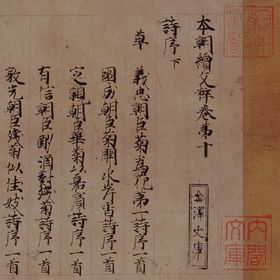 本朝續文粹卷第十
詩序下
草
義忠朝臣菊為花第一詩序一首
國成朝臣菊開水岸香詩序一首
定親朝臣華菊以嘉賓詩序一首
有信朝臣對殘菊詩序一首
敦光朝臣殘菊似佳妓詩序一首
金澤文庫
內閣文庫